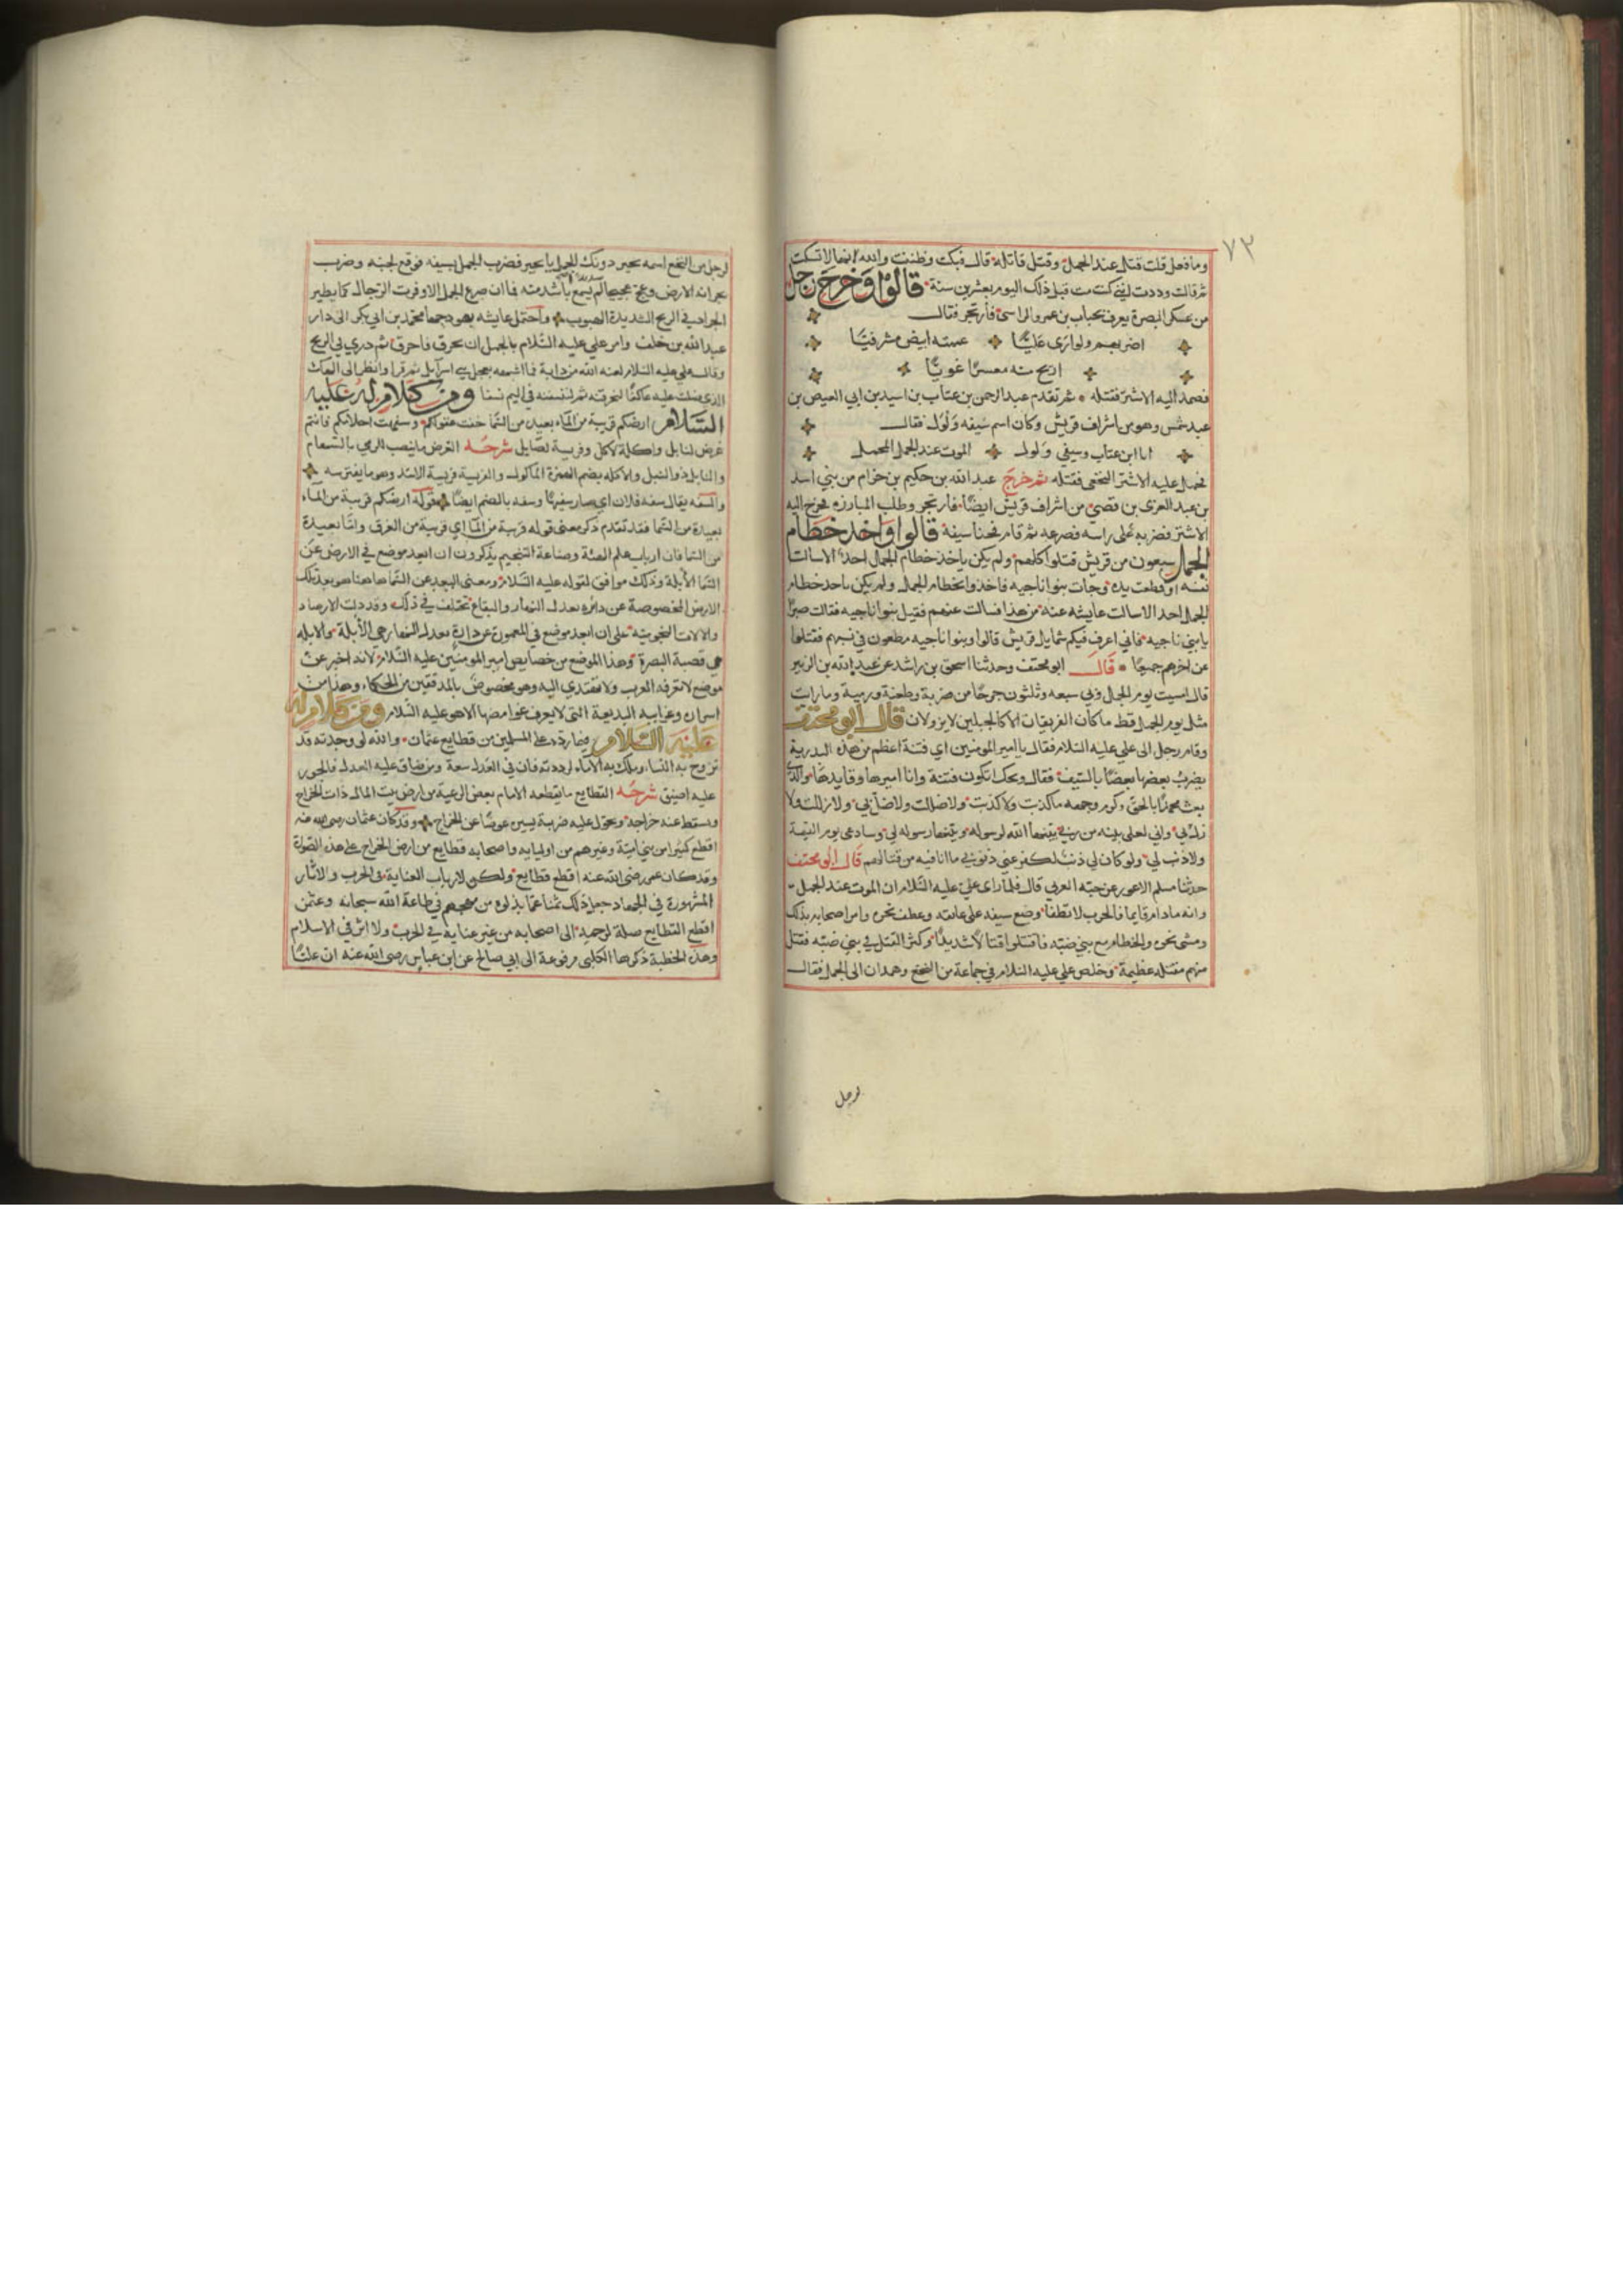 ٧٣
وما فعل قلت قتل عند الجمل وقتل قاتله قال فبكت وظننت والله انها لا تسكت
ثم قالت وددت لينى كنت مت قبل ذلك اليوم بعشرين سنة قالوا وخرج رجل
من عسكر البصرة يعرف بخباب بن عمرو الراسى فارتجز فقال
اضربهم ولو ارى عليًّا عممته ابيض مشرفيًّا
اريح منه معسرًا غويًّا
فصمد اليه الاشتر فقتله ثم تقدم عبد الرحمن بن عتاب بن اسيد بن ابي العيص بن
عبد شمس وهو من اشراف قريش وكان اسم سيفه ولول فقال
انا ابن عتاب وسيفي ولول الموت عند الجمل المجلل
فحمل عليه الاشتر النخعى فقتله ثم خرج عبد الله بن حكيم بن حزام من بني اسد
بن عبد العزى بن قصي من اشراف قريش ايضًا فارتجز وطلب المبارزه فخرج اليه
الاشتر فضربه على راسه فصرعه ثم قام فنجا بنفسه قالوا واخذ خطام
الجمل سبعون من قريش قتلوا كلهم ولم يكن ياخذ خطام الجمل احد الا سالت
نفسه او قطعت يده وجات بنوا ناجيه فاخذوا بخطام الجمل ولم يكن ياخذ خطام
الجمل احد الا سالت عايشه عنه من هذا فسالت عنهم فقيل بنوا ناجيه فقالت صبرًا
يا بني ناجيه فاني اعرف فيكم شمايل قريش قالوا وبنوا ناجيه مطعون في نسبهم فقتلوا
عن اخرهم جميعًا قال ابو مخنف وحدثنا اسحق بن راشد عن عبد الله بن الزبير
قال امسيت يوم الجمل وبي سبعه وثلثون جرحًا من ضربة وطعنة ورمية وما رايت
مثل يوم الجمل قط ما كان الفريقان الا كالجبلين لا يزولان قال ابو مخنف
وقام رجل الى علي عليه السلام فقال يا امير المومنين اي فتنة اعظم من هذه البدرية
يضرب بعضها بعضًا بالسيف فقال ويحك اتكون فتنة وانا اميرها وقايدها والذي
بعث محمدًا بالحق وكرم وجهه ما كذبت ولا كذبت ولا ضللت ولا ضل بي ولا زللت ولا
زل بي واني لعلى بينه من ربي بينها الله لرسوله وبينها رسوله لي وسادعى يوم القيمة
ولا ذنب لي ولو كان لي ذنب لكفر عني ذنوبي ما انا فيه من قتالهم قال ابو مخنف
حدثنا مسلم الاعور عن حبه العرني قال فلما راى علي عليه السلام ان الموت عند الجمل
وانه ما دام قايما فالحرب لا تطفا وضع سيفه على عاتقه وعطف نحوه وامر اصحابه بذلك
ومشى نحوه والخطام مع بني ضبه فاقتتلوا قتالًا شديدًا وكثر القتل في بني ضبه فقتل
منهم مقتله عظيمة وخلص علي عليه السلام في جماعة من النخع وهمدان الى الجمل فقال
لرجل
لرجل من النخع اسمه بحير دونك الجمل يا بحير فضرب الجمل بسيفه فوقع لجنبه وضرب
بجرانه الارض وعج عجيجا لم يسمع باشد منه فما ان صرع الجمل الا وفرت الرجال كما يطير
الجراد في الريح الشديدة الهبوب واحتمل عايشه بهودجها محمد بن ابي بكر الى دار
عبد الله بن خلف وامر علي عليه السلام بالجمل ان يحرق فاحرق ثم ذري في الريح
وقال علي عليه السلام لعنه الله من دابة فما اشبهه بعجل بني اسرايل ثم قرا وانظر الى الهك
الذي ظلت عليه عاكفًا لنحرقنه ثم لننسفنه في اليم نسفا ومن كلام له عليه
السلام ارضكم قريبة من الماء بعيد من السما خفت عقولكم وسفهت احلامكم فانتم
غرض لنابل واكلة لاكل وفريسة لصايل شرحه الغرض ما ينصب للرمي بالسهام
والنابل ذو النبل والاكله بضم الهمزة الماكول والفريسة فريسة الاسد وهو ما يفترسه
والسفه يقال سفه فلان اي صار سفيهًا وسفه بالضم ايضًا فقوله ارضكم قريبة من الماء
بعيدة من السما فقد تقدم ذكر معنى قوله قريبة من الما اي قريبة من الغرق وانها بعيدة
من السما فان ارباب علم الهيئة وصناعة التنجيم يذكرون ان ابعد موضع في الارض عن
السما الابلة وذلك موافق لقوله عليه السلام ومعنى البعد عن السما هاهنا هو بعد تلك
الارض المخصوصة عن دائره معدل النهار والبقاع تختلف في ذلك وقد دلت الارصاد
والالات النجومية على ان ابعد موضع في المعمورة عن دائرة معدل النهار هي الابلة والابله
هي قصبة البصرة وهذا الموضع من خصايص امير المومنين عليه السلام لانه اخبر عن
موضع لا تعرفه العرب ولا تهتدي اليه وهو مخصوص بالمدققين من الحكماء وهذا من
اسراره وغرايبه البديعة التى لا يعرف غوامضها الا هو عليه السلام ومن كلام له
عليه السلام فيما رده على المسلمين من قطايع عثمان والله لو وجدته قد
تزوج به النساء وملك به الاماء لرددته فان في العدل سعة ومن ضاق عليه العدل فالجور
عليه اضيق شرحه القطايع ما يقطعه الامام بعض الرعية من ارض بيت المال ذات الخراج
ويسقط عنه خراجه ويجعل عليه ضريبة يسيره عوضًا عن الخراج وقد كان عثمان رضى الله عنه
اقطع كثيرا من بني امية وغيرهم من اوليايه واصحابه قطايع من ارض الخراج على هذه الصورة
وقد كان عمر رضى الله عنه اقطع قطايع ولكن لارباب العناية في الحرب والاثار
المشهورة في الجهاد جعل ذلك ثمنا عما بذلوه من مهجهم في طاعة الله سبحانه وعثمن
اقطع القطايع صلة لرحمه الى اصحابه من غير عناية في الحرب ولا اثر في الاسلام
وهذه الخطبة ذكرها الكلبي مرفوعة الى ابي صالح عن ابن عباس رضى الله عنه ان عليًّا